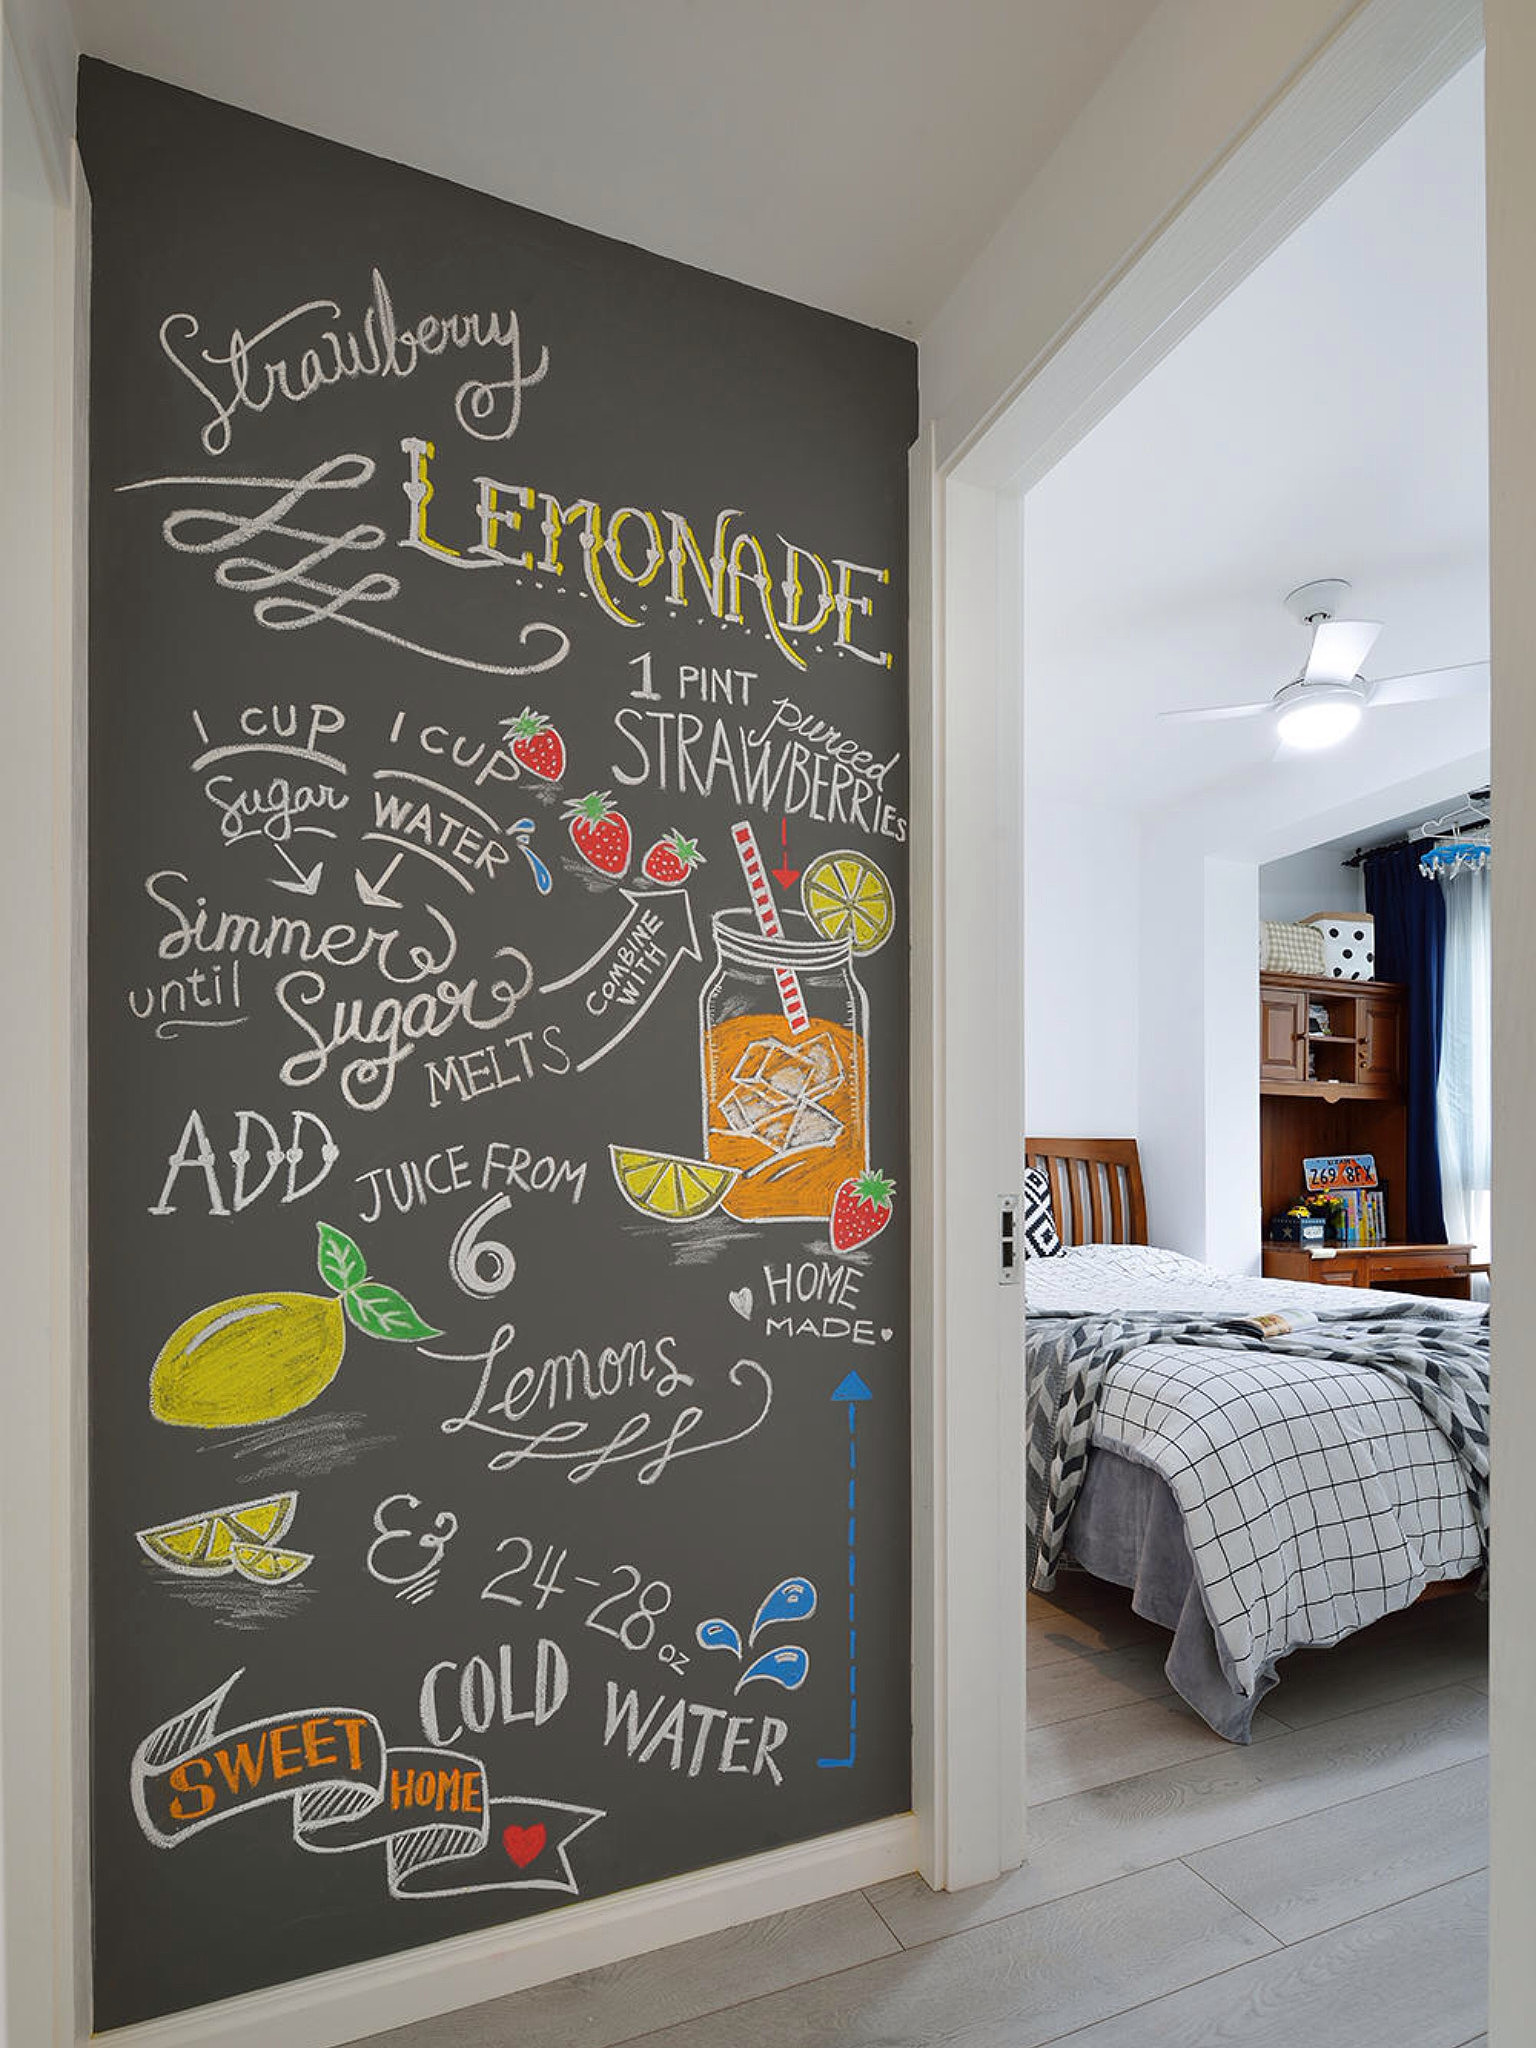 Strawberry
LEMONADE
1 CUP
Sugar
1 CUP
WATER
1 PINT
pureed
STRAWBERRIES
Simmer
until
Sugar
MELTS
COMBINE
WITH
ADD
JUICE FROM
6
Lemons
HOME
MADE
&
24-28
OZ
COLD
WATER
SWEET
HOME
Z69 8FX